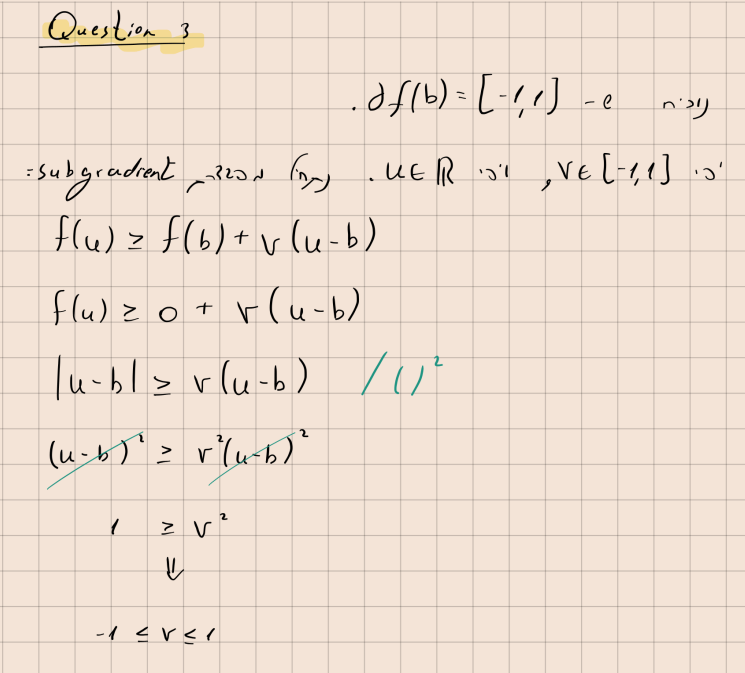 Question 3
נוכיח ש- ∂f(b) = [-1,1].
יהי v∈[-1,1], ויהי u∈ℝ. subgradient:
f(u) ≥ f(b) + v(u-b)
f(u) ≥ 0 + v(u-b)
|u-b| ≥ v(u-b) /()²
(u-b)² ≥ v²(u-b)²
1 ≥ v²
⇓
-1 ≤ v ≤ 1